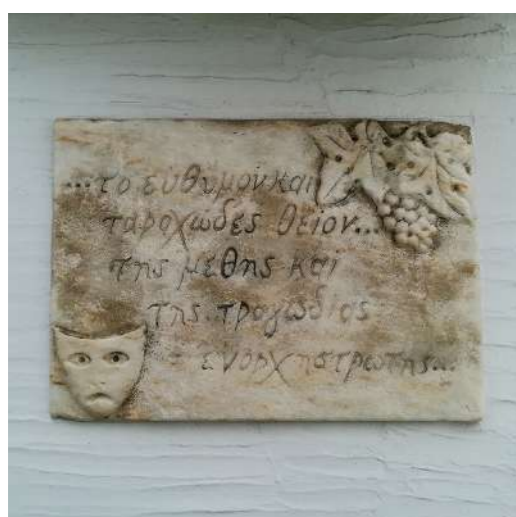 ...το εύθυμον και
ταραχώδες θείον...
της μέθης και
της τραγωδίας
ενορχηστρωτής...